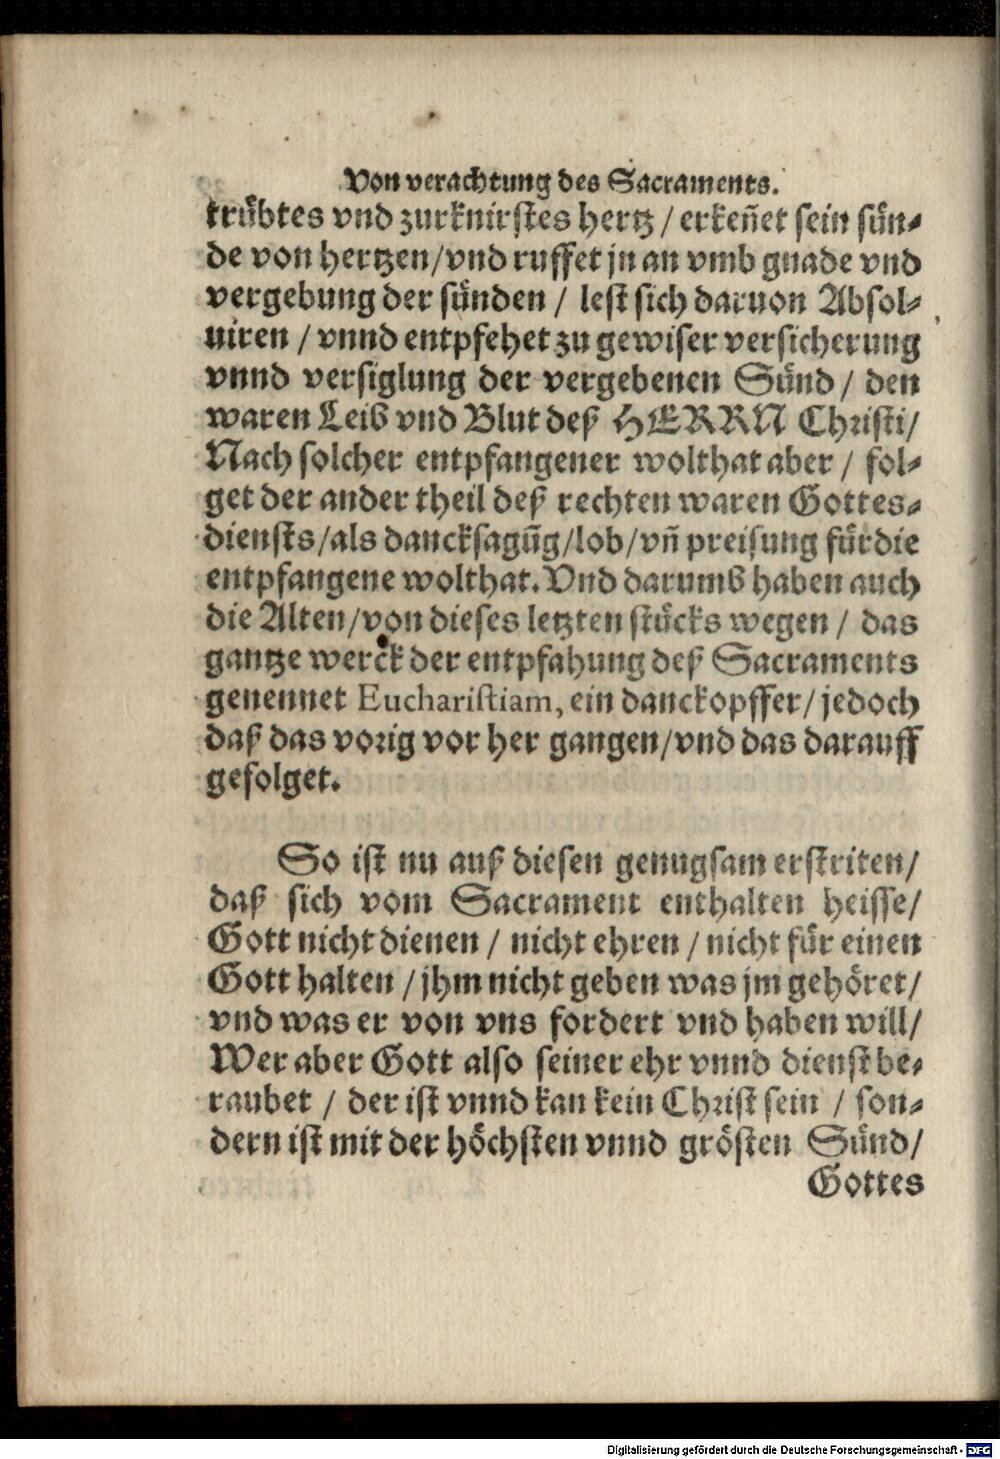 Von verachtung des Sacraments.
trübtes vnd zurknirſtes hertz / erkeñet ſein ſün⸗
de von hertzen/vnd ruffet jn an vmb gnade vnd
vergebung der ſünden / leſt ſich daruon Abſol⸗
uiren / vnnd entpfehet zu gewiſer verſicherung
vnnd verſiglung der vergebenen Sünd / den
waren Leib vnd Blut deß HERRN Chriſti/
Nach ſolcher entpfangener wolthat aber / fol⸗
get der ander theil deß rechten waren Gottes⸗
dienſts/als danckſagūg/lob/vñ preiſung für die
entpfangene wolthat. Vnd darumb haben auch
die Alten/von dieſes letzten ſtücks wegen / das
gantze werck der entpfahung deß Sacraments
genennet Euchariſtiam, ein danckopffer/ jedoch
daß das vorig vor her gangen/vnd das darauff
gefolget.
So iſt nu auß dieſen genugſam erſtriten/
daß ſich vom Sacrament enthalten heiſſe/
Gott nicht dienen / nicht ehren / nicht für einen
Gott halten / jhm nicht geben was jm gehöret/
vnd was er von vns fordert vnd haben will/
Wer aber Gott alſo ſeiner ehr vnnd dienſt be⸗
raubet / der iſt vnnd kan kein Chriſt ſein / ſon⸗
dern iſt mit der höchſten vnnd gröſten Sünd/
Gottes
Digitalisierung gefördert durch die Deutsche Forschungsgemeinschaft - DFG